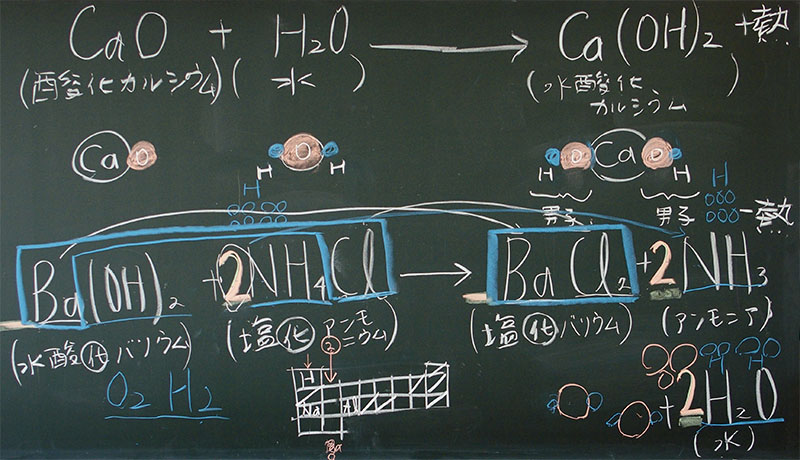 CaO + H₂O → Ca(OH)₂ +熱
(酸化カルシウム) (水) (水酸化カルシウム)
Ca O H O H H O Ca O H
男子 男子
H H
Ba(OH)₂ + 2NH₄Cl → BaCl₂ + 2NH₃ -熱
(水酸化バリウム) (塩化アンモニウム) (塩化バリウム) (アンモニア)
O₂ H₂
H
Na Al
Ba
H H
+ 2H₂O
(水)